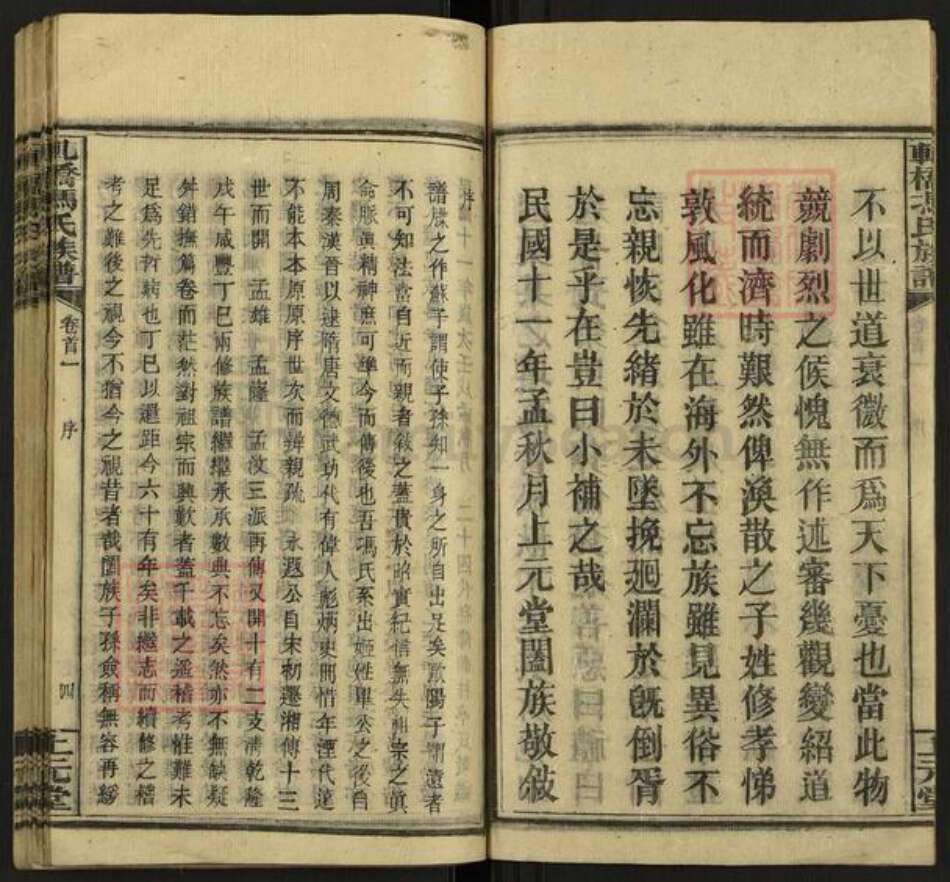 不以世道衰微而爲天下憂也當此物
競劇烈之候愧無作述審幾觀變紹道
統而濟時艱然俾渙散之子姓修孝悌
敦風化雖在海外不忘族雖見異俗不
忘親恢先緒於未墜挽廻瀾於旣倒胥
於是乎在豈曰小補之哉
民國十一年孟秋月上元堂闔族敬敍
譜牒之作蘇子謂使子孫知一身之所自出足矣歐陽子謂遠者
不可知法當自近而親者敍之蓋貴於略實紀信無失州宗之眞
命脈眞精神庶可準今而傳後也吾馮氏系出姬姓畢公之後自
周秦漢晉以逮隋唐文德武功代有偉人彪炳史冊惜年湮代遠
不能本本原原序世次而辨親疏 永遐公自宋初遷湘傳十三
世而開 孟雄 孟隆 孟汶三派再傳又開十有二支淸乾隆
戊午咸豐丁巳兩修族譜繼繼承承數典不忘矣然亦不無缺疑
舛錯撫篇卷而茫然對祖宗而興歎者蓋千載之遥稽考惟難未
足爲先哲病也丁巳以還距今六十有年矣非繼志而續修之稽
考之難後之視今不猶今之視昔者哉闔族子孫僉稱無容再緩
軋橋馮氏族譜
卷首一
序
四
上元堂